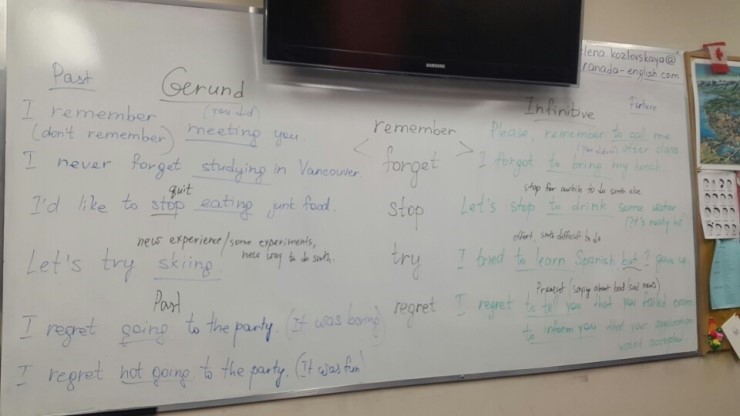 Past
Gerund
(you did)
I remember
(don't remember) meeting you.
I never forget studying in Vancouver.
quit
I'd like to stop eating junk food.
new experience/some experiments,
new way to do smth.
Let's try skiing.
Past
I regret going to the party. (It was boring)
I regret not going to the party. (It was fun!
remember
forget
stop
try
regret
Infinitive
Future
Please, remember to call me
after class
I forgot to bring my lunch
stop for awhile to do smth else
Let's stop to drink some water
(It's really hot
effort, smth difficult to do
I tried to learn Spanish but I gave up.
Present (saying about bad sad news)
I regret to tell you that you failed exam
to inform you that your application
wasn't accepted
SAMSUNG
lena.kozlovskaya@
canada-english.com